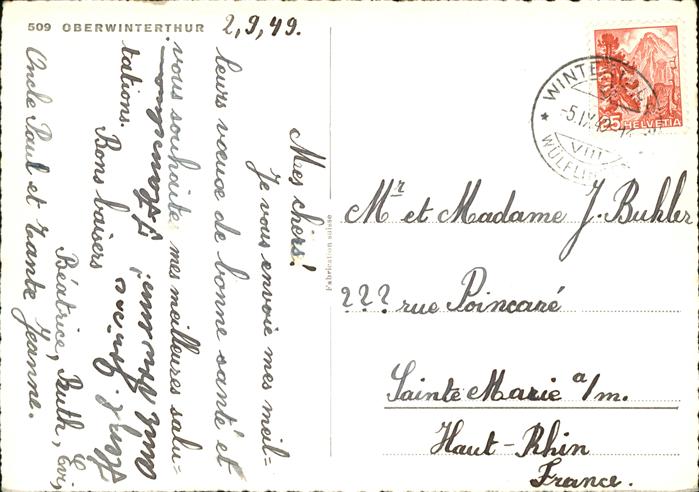 509 OBERWINTERTHUR
2,9,49.
Mes chers!
Je vous envoie mes meil-
leurs vœux de bonne santé et
vous souhaite mes meilleures salu-
tations.
Bons baisers
Béatrice, Ruth, Evi,
Oncle Paul et Tante Jeanne.
Fabrication suisse
WINTERTHUR
-5.IX.49
VIII
WÜLFLINGEN
25 HELVETIA
Mr et Madame J. Buhler
??? rue Poincaré
Sainte Marie a/m.
Haut-Rhin
France.